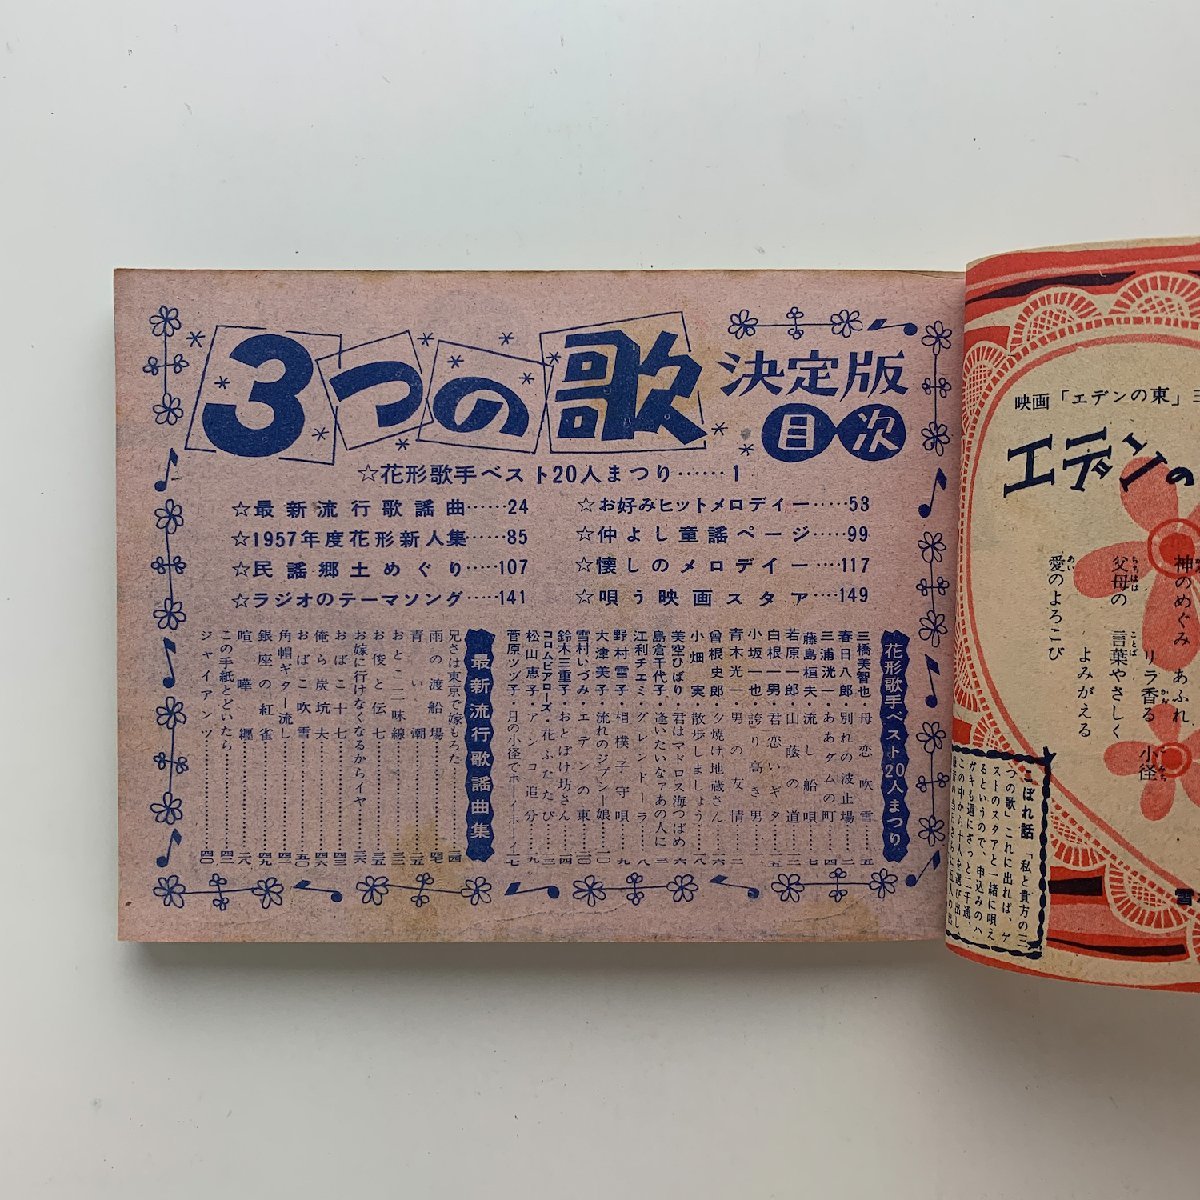 3つの歌
決定版
目次
☆花形歌手ベスト20人まつり……1
☆最新流行歌謡曲……24
☆1957年度花形新人集……85
☆民謡郷土めぐり……107
☆ラジオのテーマソング……141
☆お好みヒットメロデイー……53
☆仲よし童謡ページ……99
☆懐しのメロデイー……117
☆唄う映画スタア……149
花形歌手ベスト20人まつり
三橋美智也・母恋吹雪
春日八郎・別れの波止場
三浦洸一・ああダムの町
藤島桓夫・流し船唄
若原一郎・山蔭の道
白根一男・君恋いギター
小坂一也・誇り高き男
青木光一・男の友情
曾根史郎・夕焼け地蔵さん
小畑実・散歩しましょう
美空ひばり・君はマドロス海つばめ
島倉千代子・逢いたいなァあの人に
江利チエミ・グレンドーラ
野村雪子・相模子守唄
大津美子・流れのジプシー娘
雪村いづみ・エデンの東
鈴木三重子・おとぼけ坊さん
コロムビアローズ・花ふたたび
松山恵子・アンコ追分
菅原ツヅ子・月の小径で
最新流行歌謡曲集
兄さは東京で嫁もろた
雨の渡船場
青い潮
おとこ三味線
お俊と伝七
お嫁に行けなくなるからイヤ
おばこ十七
おばこ吹雪
俺ら炭坑夫
角帽ギター流し
銀座の紅雀
喧嘩鷹
この手紙とどいたら
ジャイアンツ
映画「エデンの東」主
エデンの
神のめぐみ　あふれ
リラ香る　小径
父母の　言葉やさしく
よみがえる
愛のよろこび
こぼれ話
「私と貴方の三
つの歌」これに出れば、ゲ
ストのスタアと一緒に唄え
るというので、申込みのハ
ガキも週にざっと二千通。
この中から十人を選び出し